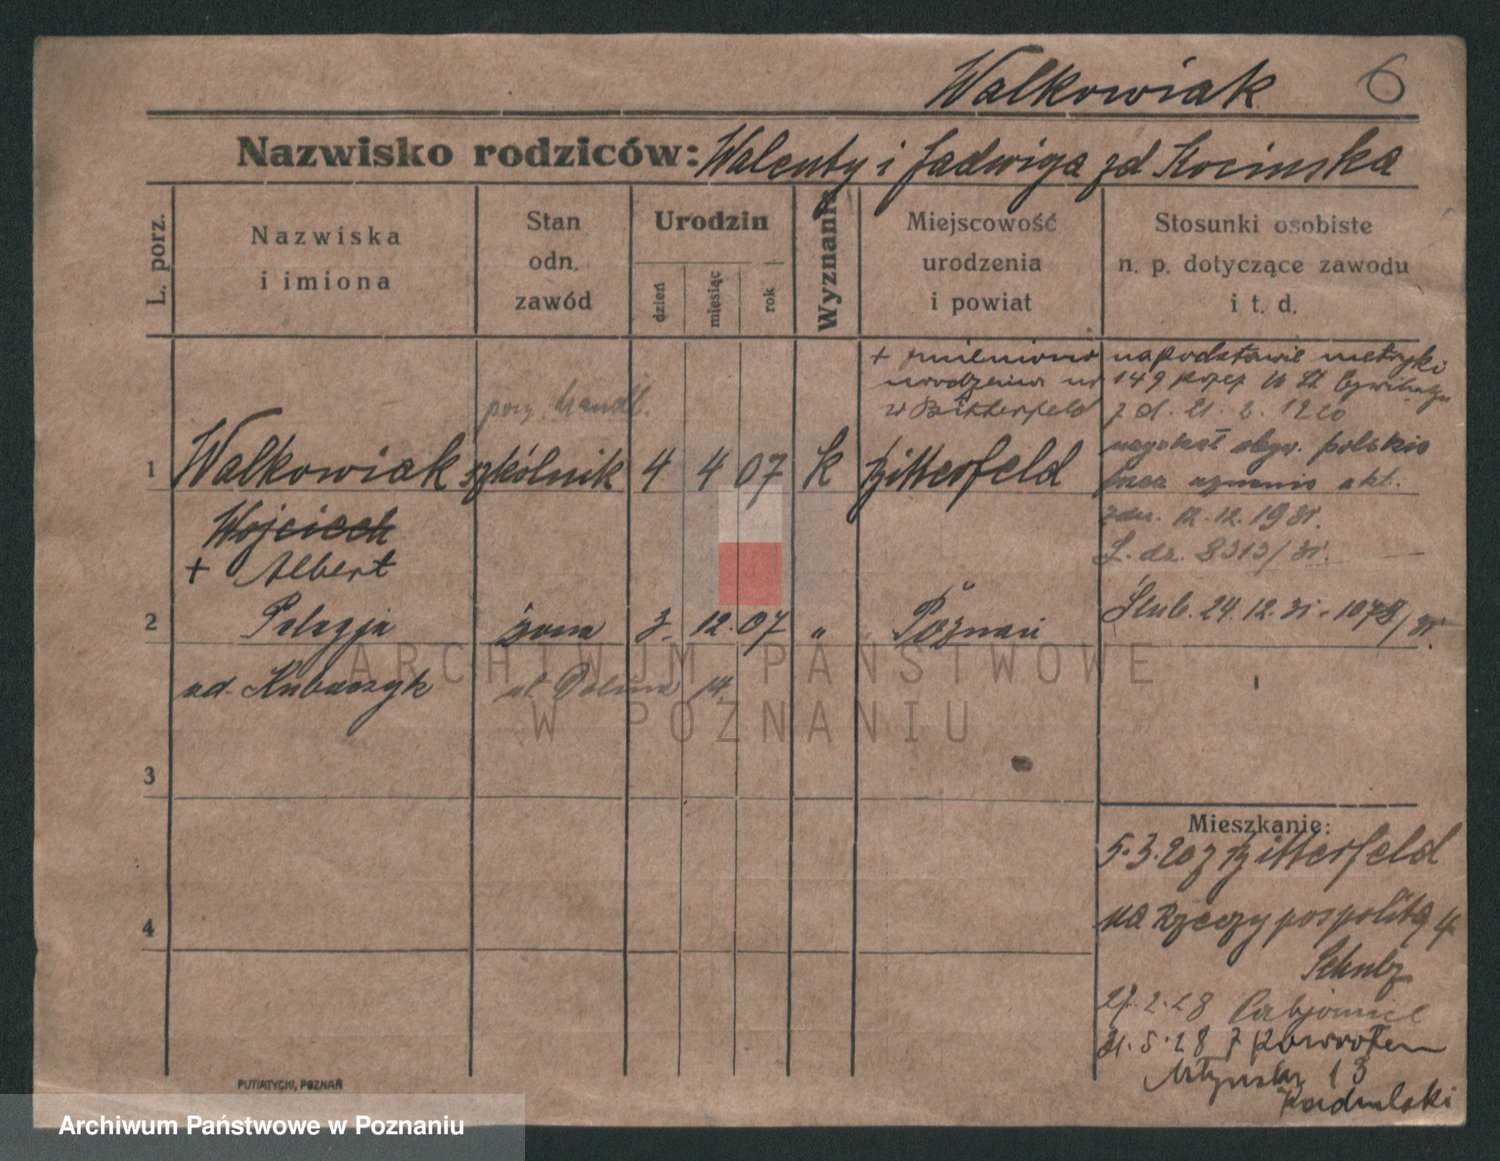 Walkowiak 6
Nazwisko rodziców: Walenty i Jadwiga zd Kocinska
L. porz.
Nazwiska
i imiona
Stan
odn.
zawód
Urodzin
dzień
miesiąc
rok
Wyznanie
Miejscowość
urodzenia
i powiat
Stosunki osobiste
n. p. dotyczące zawodu
i t. d.
+ zmieniono na podstawie metryki
urodzenia nr 149 przez
w Bitterfeld z d. 21. 2. 1920
handl.
1 Walkowiak szkólnik 4 4 07 k Bitterfeld
uzyskał obyw. polskie
przez uznanie akt.
zdn. 12. 12. 1931.
L. dz. 8313/31.
Wojciech
+ Albert
2 Pelagja żona 3. 12. 07 „ Poznań
Ślub. 24. 12. 31 -
ud. Kubaczyk ul.
ARCHIWUM PAŃSTWOWE
W POZNANIU
3
4
Mieszkanie:
5.3.20 z Bitterfeld
na Rzeczypospolitą 4
Schulz
27.2.28 Pabjanice
31.5.28 z powrotem
13
PUTIATYCKI, POZNAŃ
Archiwum Państwowe w Poznaniu